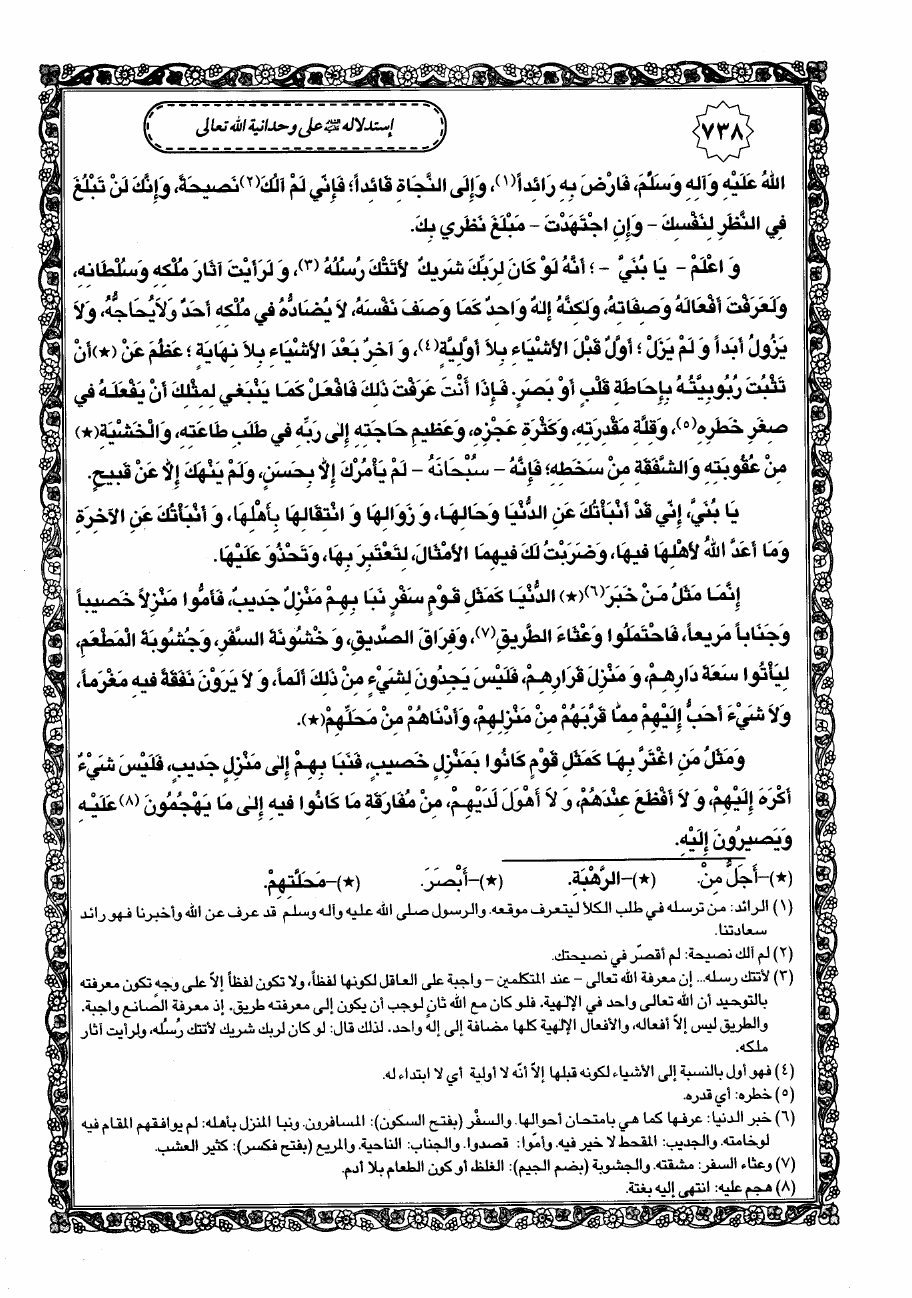 ٧٣٨
إستدلاله عليه السلام على وحدانية الله تعالى
اللهُ عَلَيْهِ وَآلِهِ وَسَلَّمَ، فَارْضَ بِهِ رَائِداً(١)، وَإِلَى النَّجَاةِ قَائِداً؛ فَإِنِّي لَمْ آلُكَ(٢) نَصيحَةً، وَإِنَّكَ لَنْ تَبْلُغَ
فِي النَّظَرِ لِنَفْسِكَ – وَإِنِ اجْتَهَدْتَ – مَبْلَغَ نَظَري بِكَ.
وَ اعْلَمْ – يَا بُنَيَّ – ؛ أَنَّهُ لَوْ كَانَ لِرَبِّكَ شَريكٌ لأَتَتْكَ رُسُلُهُ (٣)، وَ لَرَأَيْتَ آثَارَ مُلْكِهِ وَسُلْطَانِهِ،
وَلَعَرَفْتَ أَفْعَالَهُ وَصِفَاتِهِ، وَلكِنَّهُ إِلهٌ وَاحِدٌ كَمَا وَصَفَ نَفْسَهُ، لاَ يُضَادُّهُ في مُلْكِهِ أَحَدٌ وَلاَ يُحَاجُّهُ، وَلاَ
يَزُولُ أَبَداً وَ لَمْ يَزَلْ ؛ أَوَّلٌ قَبْلَ الأَشْيَاءِ بِلاَ أَوَّلِيَّةٍ(٤)، وَ آخِرٌ بَعْدَ الأَشْيَاءِ بِلاَ نِهَايَةٍ ؛ عَظُمَ عَنْ (★) أَنْ
تَثْبُتَ رُبُوبِيَّتُهُ بِإِحَاطَةِ قَلْبٍ أَوْ بَصَرٍ. فَإِذَا أَنْتَ عَرَفْتَ ذلِكَ فَافْعَلْ كَمَا يَنْبَغي لِمِثْلِكَ أَنْ يَفْعَلَهُ في
صِغَرِ خَطَرِهِ(٥)، وَقِلَّةِ مَقْدُرَتِهِ، وَكَثْرَةِ عَجْزِهِ، وَعَظيمِ حَاجَتِهِ إِلى رَبِّهِ في طَلَبِ طَاعَتِهِ، وَالْخَشْيَةِ(★)
مِنْ عُقُوبَتِهِ وَالشَّفَقَةِ مِنْ سَخَطِهِ؛ فَإِنَّهُ – سُبْحَانَهُ – لَمْ يَأْمُرْكَ إِلاَّ بِحَسَنٍ، وَلَمْ يَنْهَكَ إِلاَّ عَنْ قَبيحٍ.
يَا بُنَيَّ، إِنّي قَدْ أَنْبَأْتُكَ عَنِ الدُّنْيَا وَحَالِهَا، وَ زَوَالِهَا وَ انْتِقَالِهَا بِأَهْلِهَا، وَ أَنْبَأْتُكَ عَنِ الآخِرَةِ
وَمَا أَعَدَّ اللهُ لأَهْلِهَا فيهَا، وَضَرَبْتُ لَكَ فيهِمَا الأَمْثَالَ، لِتَعْتَبِرَ بِهَا، وَتَحْذُوَ عَلَيْهَا.
إِنَّمَا مَثَلُ مَنْ خَبَرَ(٦)(★) الدُّنْيَا كَمَثَلِ قَوْمٍ سَفْرٍ نَبَا بِهِمْ مَنْزِلٌ جَديبٌ، فَأَمُّوا مَنْزِلاً خَصيباً
وَجَنَاباً مَريعاً، فَاحْتَمَلُوا وَعْثَاءَ الطَّريقِ(٧)، وَفِرَاقَ الصَّديقِ، وَ خُشُونَةَ السَّفَرِ، وَجُشُوبَةَ الْمَطْعَمِ،
لِيَأْتُوا سَعَةَ دَارِهِمْ، وَ مَنْزِلَ قَرَارِهِمْ، فَلَيْسَ يَجِدُونَ لِشَيْءٍ مِنْ ذلِكَ أَلَماً، وَ لاَ يَرَوْنَ نَفَقَةً فيهِ مَغْرَماً،
وَلاَ شَيْءَ أَحَبُّ إِلَيْهِمْ مِمَّا قَرَّبَهُمْ مِنْ مَنْزِلِهِمْ، وَأَدْنَاهُمْ مِنْ مَحَلِّهِمْ(★).
وَمَثَلُ مَنِ اغْتَرَّ بِهَا كَمَثَلِ قَوْمٍ كَانُوا بِمَنْزِلٍ خَصيبٍ، فَنَبَا بِهِمْ إِلى مَنْزِلٍ جَديبٍ، فَلَيْسَ شَيْءٌ
أَكْرَهَ إِلَيْهِمْ، وَ لاَ أَفْظَعَ عِنْدَهُمْ، وَ لاَ أَهْوَلَ لَدَيْهِمْ، مِنْ مُفَارَقَةِ مَا كَانُوا فيهِ إِلى مَا يَهْجُمُونَ (٨) عَلَيْهِ
وَيَصيرُونَ إِلَيْهِ.
(★)–أَجَلُّ مِنْ. (★)–الرَّهْبَةِ. (★)–أَبْصَرَ. (★)–مَحَلَّتِهِمْ.
(١) الرائد: من ترسله في طلب الكلأ ليتعرف موقعه. والرسول صلى الله عليه وآله وسلم قد عرف عن الله وأخبرنا فهو رائد
سعادتنا.
(٢) لم آلك نصيحة: لم أقصّر في نصيحتك.
(٣) لأتتك رسله... إن معرفة الله تعالى – عند المتكلمين – واجبة على العاقل لكونها لفظاً، ولا تكون لفظاً إلاّ على وجهٍ تكون معرفته
بالتوحيد أن الله تعالى واحد في الإلهية. فلو كان مع الله ثانٍ لوجب أن يكون إلى معرفته طريق، إذ معرفة الصّانع واجبة.
والطريق ليس إلاّ أفعاله، والأفعال الإلهية كلها مضافة إلى إله واحد. لذلك قال: لو كان لربك شريك لأتتك رُسُله، ولرأيت آثار
ملكه.
(٤) فهو أول بالنسبة إلى الأشياء لكونه قبلها إلاّ أنّه لا أولية أي لا ابتداء له.
(٥) خطره: أي قدره.
(٦) خبر الدنيا: عرفها كما هي بامتحان أحوالها. والسفْر (بفتح السكون): المسافرون. ونبا المنزل بأهله: لم يوافقهم المقام فيه
لوخامته. والجديب: المقحط لا خير فيه. وأمّوا: قصدوا. والجناب: الناحية. والمريع (بفتح فكسر): كثير العشب.
(٧) وعثاء السفر: مشقته. والجشوبة (بضم الجيم): الغلظ، أو كون الطعام بلا أدم.
(٨) هجم عليه: انتهى إليه بغتة.